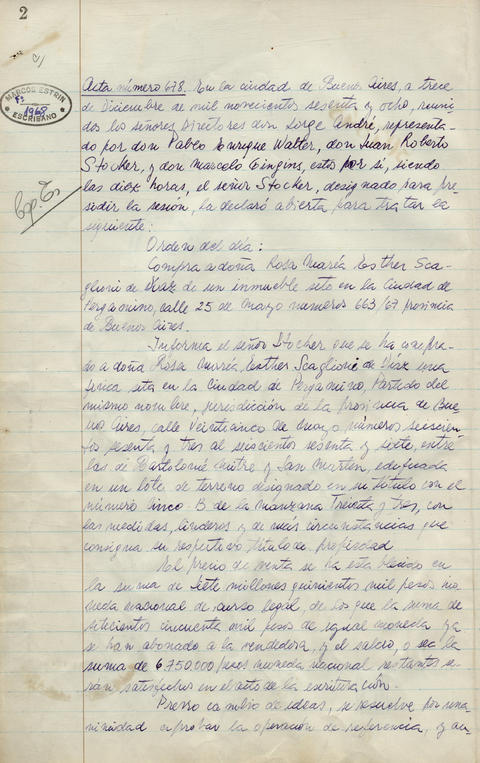 2
MARCOS ESTRIN
1968
ESCRIBANO
Acta número 678. En la ciudad de Buenos Aires, a trece
de Diciembre de mil novecientos sesenta y ocho, reuni-
dos los señores Directores don Jorge André, representa-
do por don Pablo Enrique Walter, don Juan Roberto
Stocker, y don Marcelo Gingins, esto por sí, siendo
las diez horas, el señor Stocker, designado para pre-
sidir la sesión, la declaró abierta para tratar la
siguiente:
Orden del día:
Compra a doña Rosa María Esther Sca-
glioni de Díaz de un inmueble sito en la Ciudad de
Pergamino, calle 25 de Mayo números 663/67 provincia
de Buenos Aires.
Informa el señor Stocker que se ha compra-
do a doña Rosa María Esther Scaglioni de Díaz una
finca sita en la Ciudad de Pergamino, Partido del
mismo nombre, jurisdicción de la provincia de Bue
nos Aires, calle Veinticinco de Mayo números seiscien
tos sesenta y tres al seiscientos sesenta y siete, entre
las de Bartolomé Mitre y San Martín, edificada
en un lote de terreno designado en su título con el
número Cinco-B de la manzana Treinta y tres, con
las medidas, linderos y demás circunstancias que
consigna su respectivo título de propiedad
El precio de venta se ha establecido en
la suma de siete millones quinientos mil pesos mo
neda nacional de curso legal, de los que la suma de
setecientos cincuenta mil pesos de igual moneda ya
se han abonado a la vendedora, y el saldo, o sea la
suma de 6.750.000 pesos moneda nacional restantes se-
rán satisfechos en el acto de la escrituración.
Previo cambio de ideas, se resuelve por una-
nimidad aprobar la operación de referencia, y au